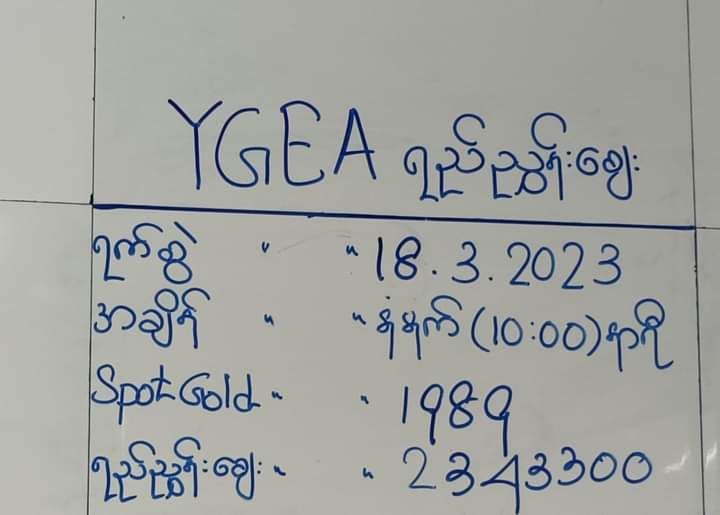 YGEA ရည်ညွှန်းဈေး
ရက်စွဲ " " 18.3.2023
အချိန် " " နံနက်(10:00)နာရီ
Spot Gold " " 1989
ရည်ညွှန်းဈေး " " 2343300